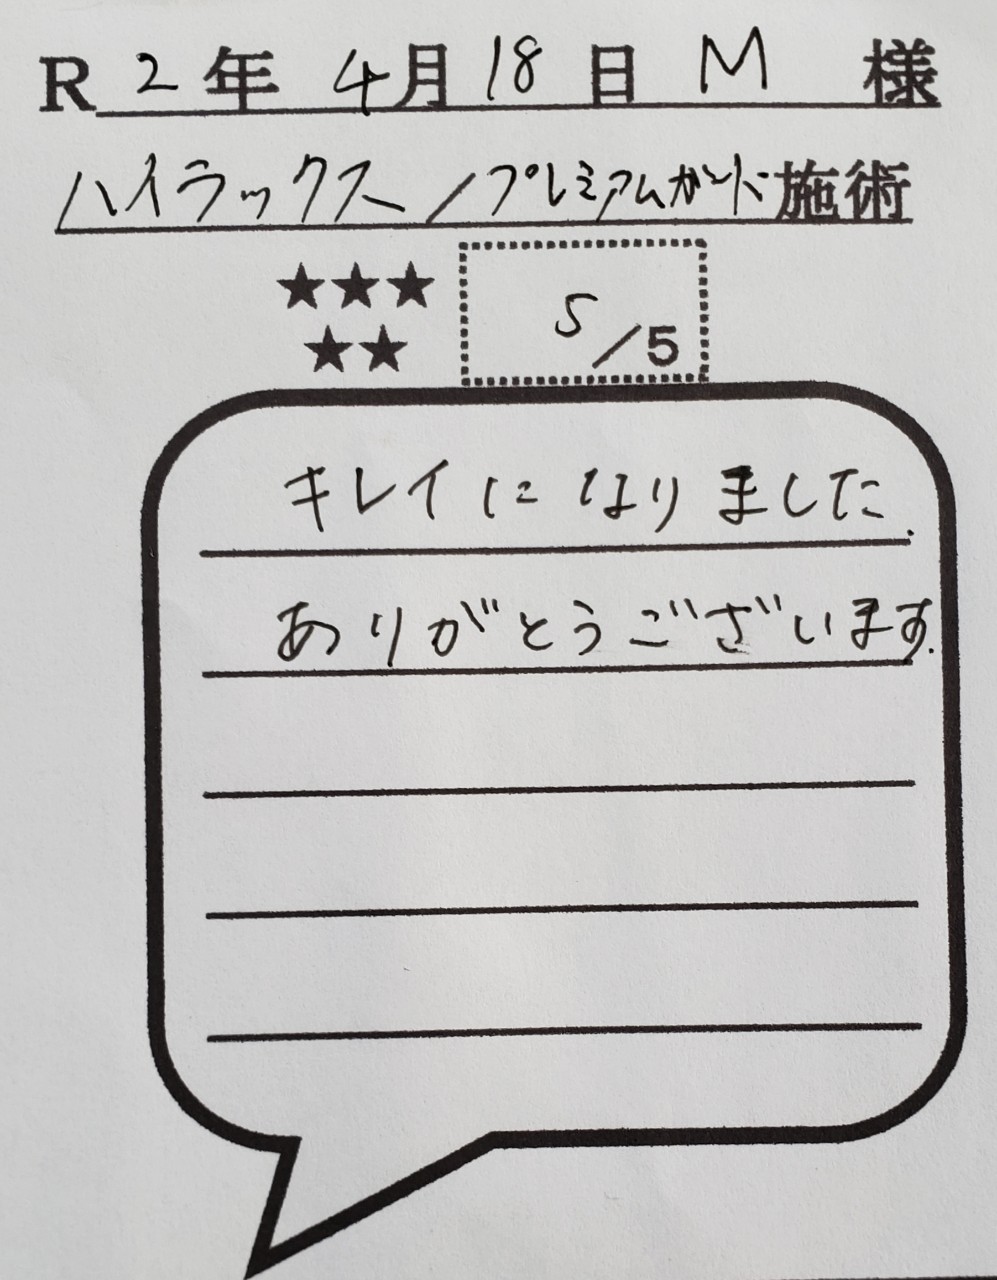 R 2 年 4 月 18 日 M 様
ハイラックス／プレミアムガード施術
★★★
★★
5/5
キレイになりました.
ありがとうございます.